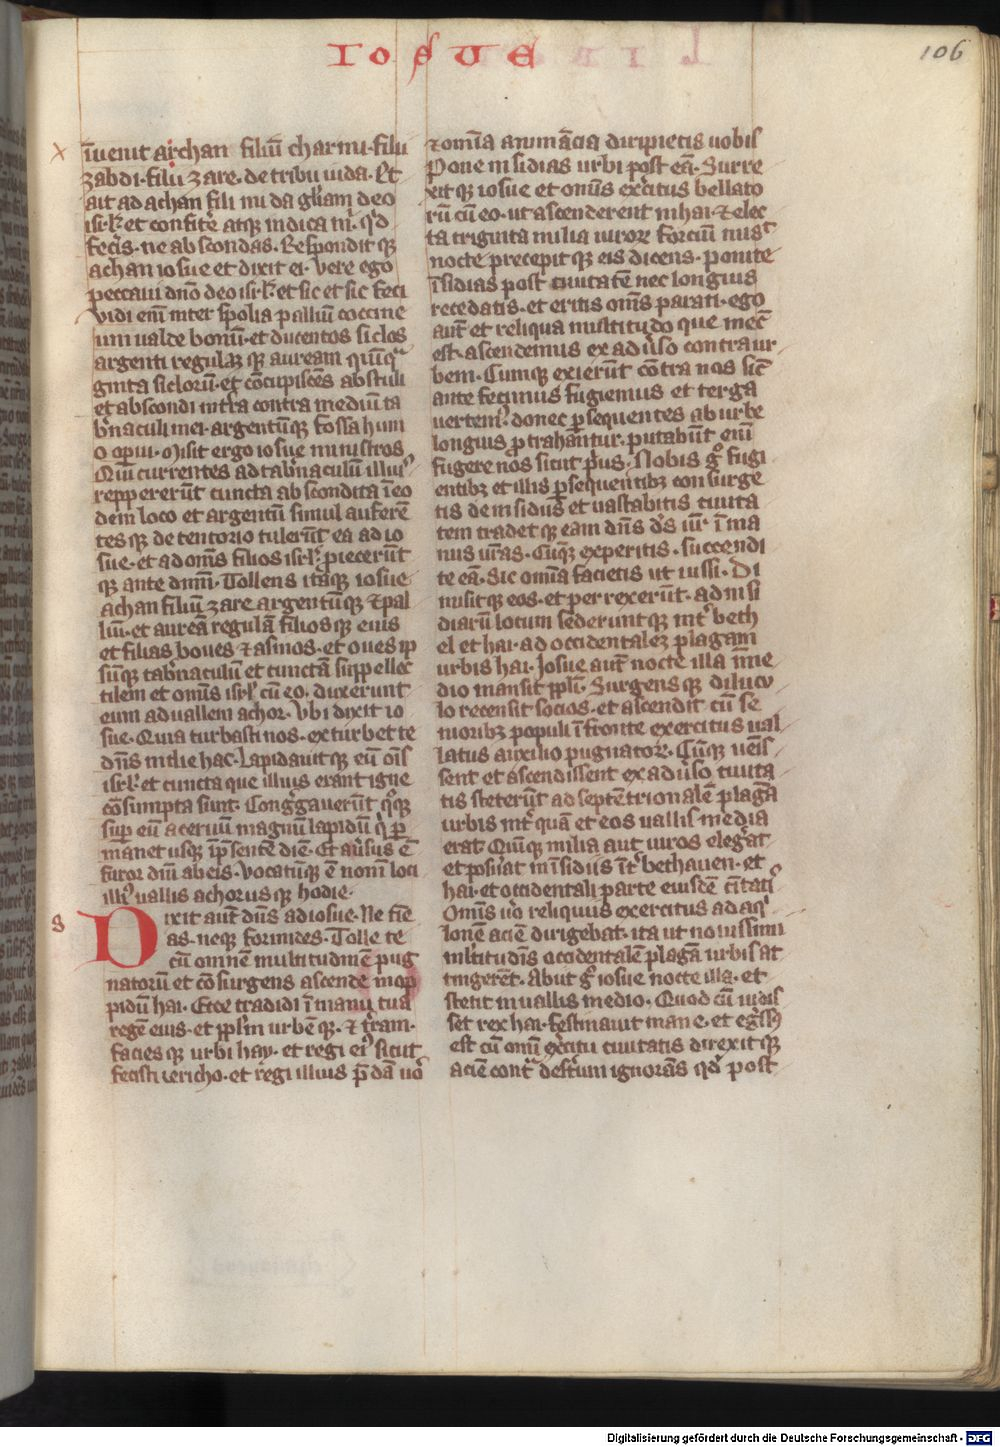 IOSUE
106
īuenit archan filiū charmi·filii
zabdi·filii zare·de tribu iuda·Et
ait ad achan fili mi da gl'iam deo
isr'l· et confite atqꝫ indica m' qd
feceris· ne abscondas· Respondit qꝫ
achan iosue et dixit ei· Vere ego
peccaui dn̄o deo isr'l· et sic et sic feci
Vidi eni inter spolia pallium coccine
um ualde bonū· et ducentos siclos
argenti regulāqꝫ auream quinqua
ginta siclorū· et cōcupiscēs abstuli
et abscondi in tr̄a contra mediū ta
b'naculi mei· argentūqꝫ fossa hum
o operui· Misit ergo iosue ministros
Qui currentes ad tab'naculū illius
reppererūt cuncta abscondita ī eo
dem loco et argentū simul auferē
tesqꝫ de tentorio tulerūt ea ad io
sue· et ad om̄s filios isr'l· proiecerūt
qꝫ ante dn̄m· Tollens itaqꝫ iosue
achan filiū zare argentūqꝫ ⁊ pal
liū· et aureā regulā filiosqꝫ eius
et filias boues ⁊ asinos· et oues ip
sūqꝫ tab'naculū et cunctā suppellec
tilem et om̄is isr'l cū eo· duxerunt
eum ad uallem achor· Vbi dixit io
sue· Quia turbasti nos· exturbet te
dn̄s in die hac· Lapidauitqꝫ eū oīs
isr'l· et cuncta que illius erant igne
cōsumpta sunt· Congregauerūt qꝫ
sup eū aceruū magnū lapidū q' p
manet usqꝫ ī p̄sentē diē· Et au'sus ē
furor dn̄i ab eis· Vocatūqꝫ ē nomē loci
illi' uallis achor usqꝫ hodie·
8
Dixit aut̄ dn̄s ad iosue· Ne tīe
as· neqꝫ formides· Tolle te
cū omnē multitudinē pug
natorū et cōsurgens ascende in op
pidū hai· Ecce tradidi ī manu tua
regē eius· et pp̄l'm urbēqꝫ· ⁊ tr̄am·
faciesqꝫ urbi hay· et regi ei' sicut
fecisti iericho· et regi illius p̄dā u'o
⁊ om̄ia animācia diripietis uobis
Pone insidias urbi post eā· Surre
xitqꝫ iosue et om̄is exercitus bellato
rū cū eo· ut ascenderent in hai· ⁊ elec
ta triginta milia uiror̄ forciū misit
nocte precepitqꝫ eis dicens· ponite
īsidias post ciuitatē nec longius
recedatis· et eritis om̄s parati· ego
aut̄ et reliqua multitudo que mecū
est· ascendemus ex adu'so contra ur
bem· Cumqꝫ exierūt cōtra nos sic̄
ante fecimus fugiemus et terga
uertem'· donec p̄sequentes ab urbe
longius protrahantur· putabūt eni
fugere nos sicut prius· Nobis g° fugi
entibꝫ et illis p̄sequentibꝫ consurge
tis de insidiis et uastabitis ciuita
tem tradetqꝫ eam dn̄s d's u'r ī ma
nus ur̄as· Cūqꝫ experitis· succendi
te eā· Sic om̄ia facietis ut iussi· Di
misitqꝫ eos· et perrexerūt· ad insi
diarū locum sederuntqꝫ int' beth
el et hai· ad occidentalez plagam
urbis hai· Iosue aut̄ nocte illa ī me
dio mansit pp̄li· Surgensqꝫ dilucu
lo recensit socios· et ascendit cū se
nioribꝫ populi ī fronte exercitus ual
latus auxilio pugnator̄· Cūqꝫ uenis
sent et ascendissent ex adu'so ciuita
tis steterūt ad septētrionalē plagā
urbis int' quā et eos uallis media
erat· Quīqꝫ milia aut̄ uiros elegerat
et posu'at in īsidiis īt' bethauen· et
hai· et occidentali parte eiusdē ciuitatis
Om̄is u'o reliquus exercitus ad aq'
lonē aciē dirigebat· ita ut nouissimi
m'ltitudīs occidentalē plagā urbis at
tingerēt· Abiit g° iosue nocte illa· et
stetit in uallis medio· Quod cū uidis
set rex hai· festinauit mane· et egress'
est cū omī exercitu ciuitatis direxitqꝫ
aciē contr̄ desertum ignorās qd' post
Digitalisierung gefördert durch die Deutsche Forschungsgemeinschaft - DFG